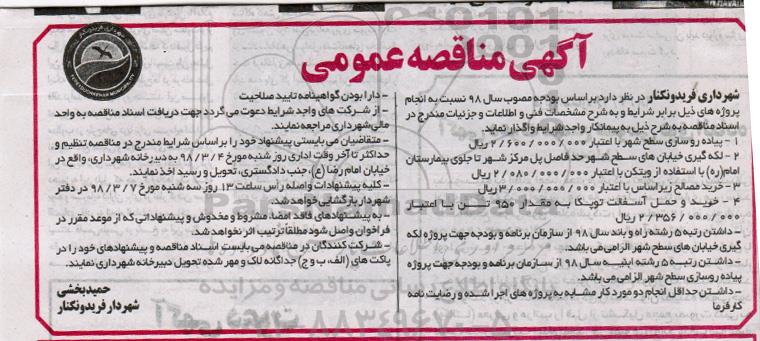 آگهی مناقصه عمومی
شهرداری فریدونکنار در نظر دارد بر اساس بودجه مصوب سال ۹۸ نسبت به انجام
پروژه های ذیل برابر شرایط و به شرح مشخصات فنی و اطلاعات و جزئیات مندرج در
اسناد مناقصه به شرح ذیل به پیمانکار واجد شرایط واگذار نماید.
۱ - پیاده رو سازی سطح شهر با اعتبار ۲/۶۰۰/۰۰۰/۰۰۰ ریال
۲ - لکه گیری خیابان های سطح شهر حد فاصل پل مرکز شهر تا جلوی بیمارستان
امام(ره) با استفاده از ویتکن با اعتبار ۲/۰۸۰/۰۰۰/۰۰۰ ریال
۳ - خرید مصالح زیراساس با اعتبار ۳/۰۰۰/۰۰۰/۰۰۰ ریال
۴ - خرید و حمل آسفالت توپکا به مقدار ۹۵۰ تن با اعتبار
۲/۳۵۶/۰۰۰/۰۰۰ ریال
- داشتن رتبه ۵ رشته راه و باند سال ۹۸ از سازمان برنامه و بودجه جهت پروژه لکه
گیری خیابان های سطح شهر الزامی می باشد.
- داشتن رتبه ۵ رشته ابنیه سال ۹۸ از سازمان برنامه و بودجه جهت پروژه
پیاده روسازی سطح شهر الزامی می باشد.
- داشتن حداقل انجام دو مورد کار مشابه به پروژه های اجرا شده و رضایت نامه
کارفرما
- دارا بودن گواهینامه تایید صلاحیت
- از شرکت های واجد شرایط دعوت می گردد جهت دریافت اسناد مناقصه به واحد
مالی شهرداری مراجعه نمایند.
- متقاضیان می بایستی پیشنهاد خود را بر اساس شرایط مندرج در مناقصه تنظیم و
حداکثر تا آخر وقت اداری روز شنبه مورخ ۹۸/۳/۴ به دبیرخانه شهرداری، واقع در
خیابان امام رضا (ع)، جنب دادگستری، تحویل و رسید اخذ نمایند.
- کلیه پیشنهادات واصله رأس ساعت ۱۳ روز سه شنبه مورخ ۹۸/۳/۷ در دفتر
شهردار بازگشایی خواهد شد.
- به پیشنهادهای فاقد امضا، مشروط و مخدوش و پیشنهاداتی که از موعد مقرر در
فراخوان واصل شود مطلقاً ترتیب اثر نخواهد شد.
- شرکت کنندگان در مناقصه می بایست اسناد مناقصه و پیشنهادهای خود را در
پاکت های (الف، ب و ج) جداگانه لاک و مهر شده تحویل دبیرخانه شهرداری نمایند.
حمید بخشی
شهردار فریدونکنار